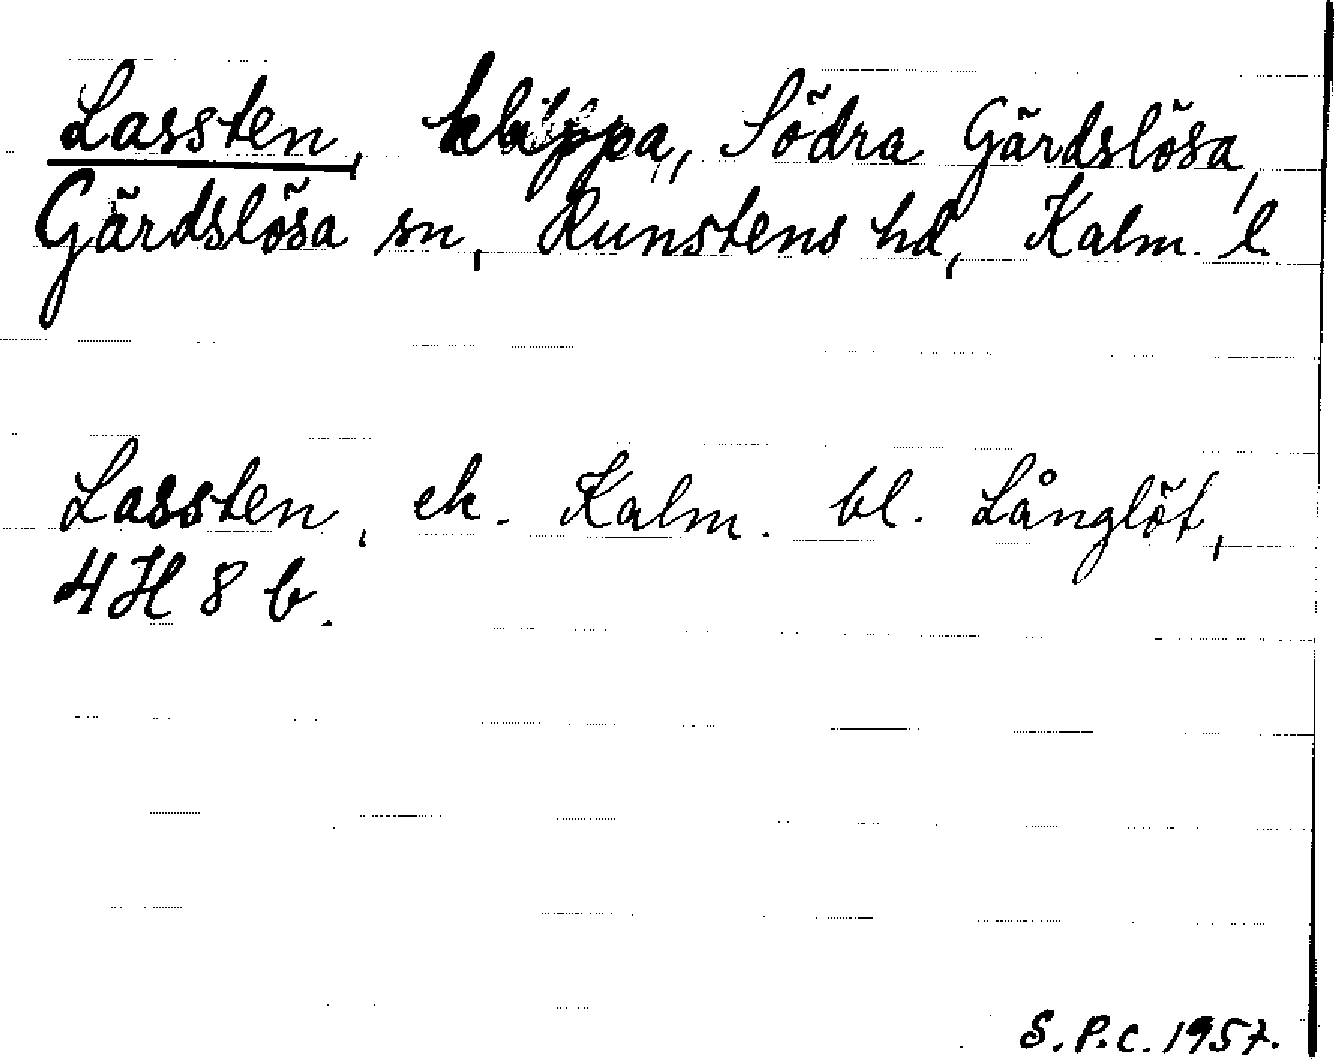 Lassten, klippa, Södra Gärdslösa,
Gärdslösa sn, Runstens hd, Kalm. l.
Lassten, ek. Kalm. bl. Långlöt,
4H 8 b.
S.P.C. 1957.